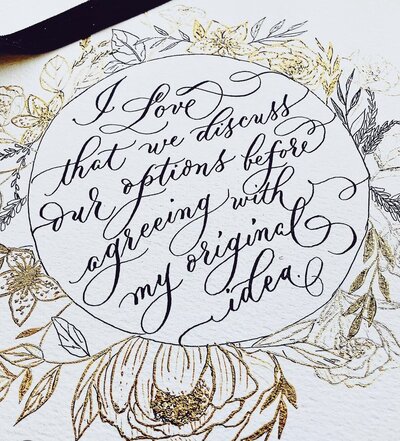 I Love
that we discuss
our options before
agreeing with
my original
idea.